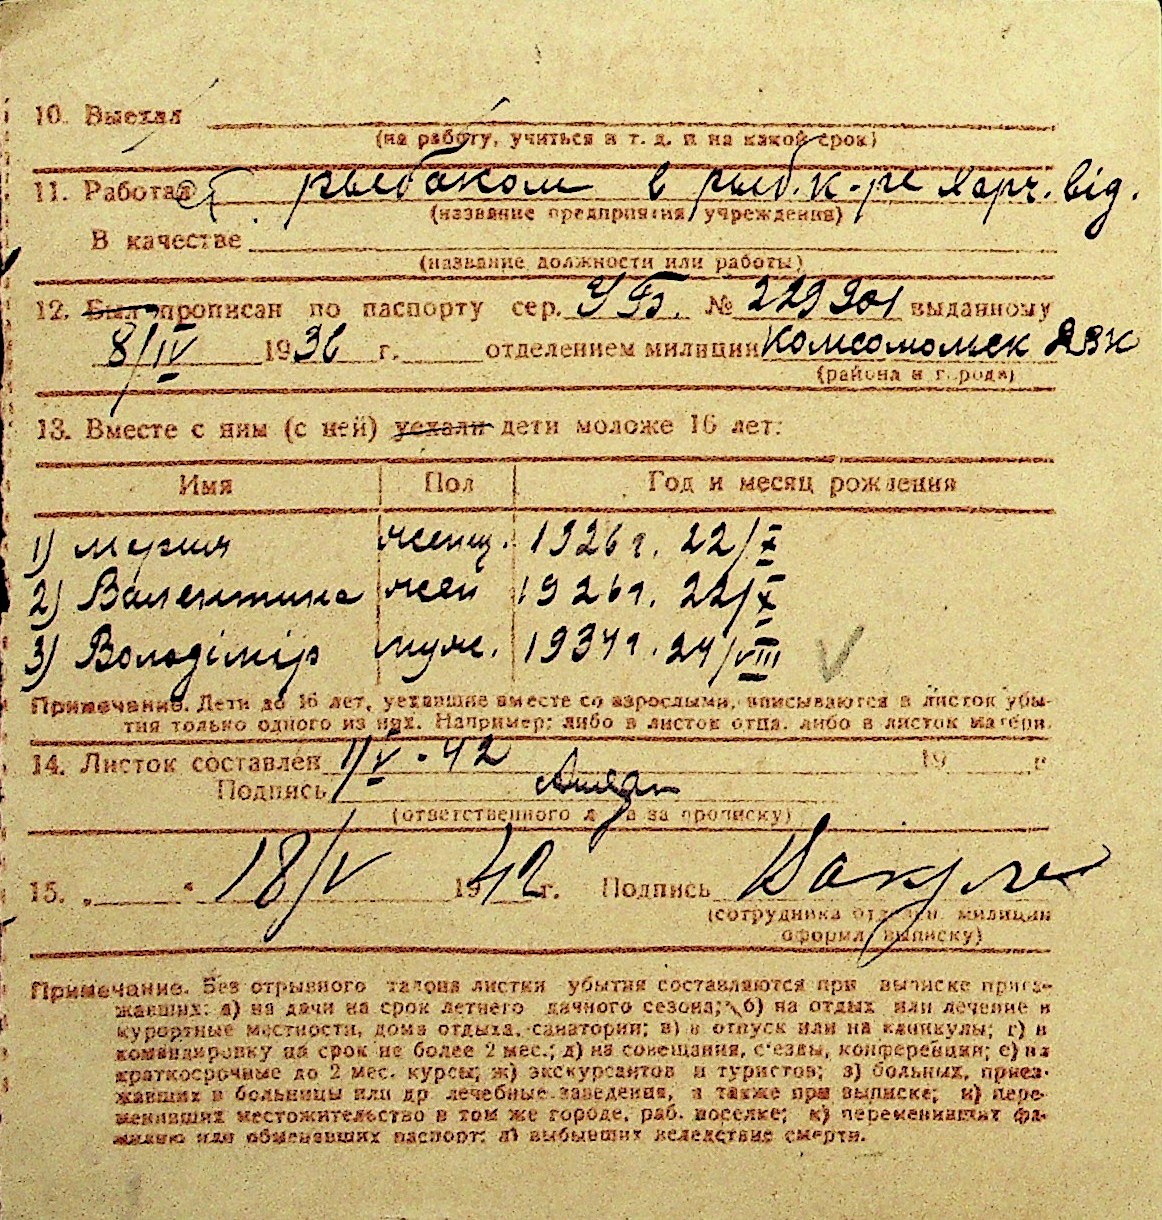 10. Выехал
(на работу, учиться и т. д. и на какой срок)
11. Работал рыбаком в рыб. к-ре Харч. від.
(название предприятия, учреждения)
В качестве
(название должности или работы)
12. Был прописан по паспорту сер. УБ. № 229301 выданному
8/IV 1936 г. отделением милиции Комсомольск ДВК
(района и города)
13. Вместе с ним (с ней) уехали дети моложе 16 лет:
Имя Пол Год и месяц рождения
1) Мария женщ. 1926 г. 22/X
2) Валентина жен 1926 г. 22/X
3) Володімір муж. 1934 г. 24/VIII
Примечание. Дети до 16 лет, уехавшие вместе со взрослыми, вписываются в листок убы-
тия только одного из них. Например: либо в листок отца, либо в листок матери.
14. Листок составлен 1/V - 42 19 г
Подпись
(ответственного лица за прописку)
15. „ “ 18/V 1942 г. Подпись
(сотрудника отделен. милиции
оформл. выписку)
Примечание. Без отрывного талона листки убытия составляются при выписке приез-
жавших: а) на дачи на срок летнего дачного сезона; б) на отдых или лечение в
курортные местности, дома отдыха, санатории; в) в отпуск или на каникулы; г) в
командировку на срок не более 2 мес.; д) на совещания, с'езды, конференции; е) на
краткосрочные до 2 мес. курсы; ж) экскурсантов и туристов; з) больных, приез-
жавших в больницы или др. лечебные заведения, а также при выписке; и) пере-
менивших местожительство в том же городе, раб. поселке; к) переменивших фа-
милию или обменявших паспорт; л) выбывших вследствие смерти.